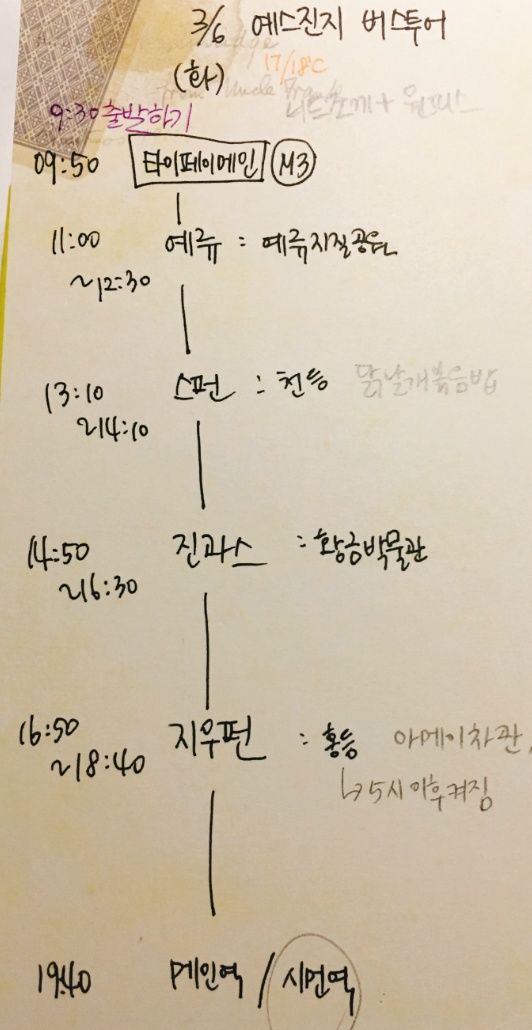 3/6 예스진지 버스투어
(화) 17/18℃
from Uncle
니트조끼 + 원피스
9:30 출발하기
09:50 타이페이메인 M3
11:00 예류 : 예류지질공원
~12:30
13:10 스펀 : 천등 닭날개볶음밥
~14:10
14:50 진과스 : 황금박물관
~16:30
16:50 지우펀 : 홍등 아메이차관,
~18:40 ↳ 5시 이후 켜짐
19:40 메인역 / 시먼역